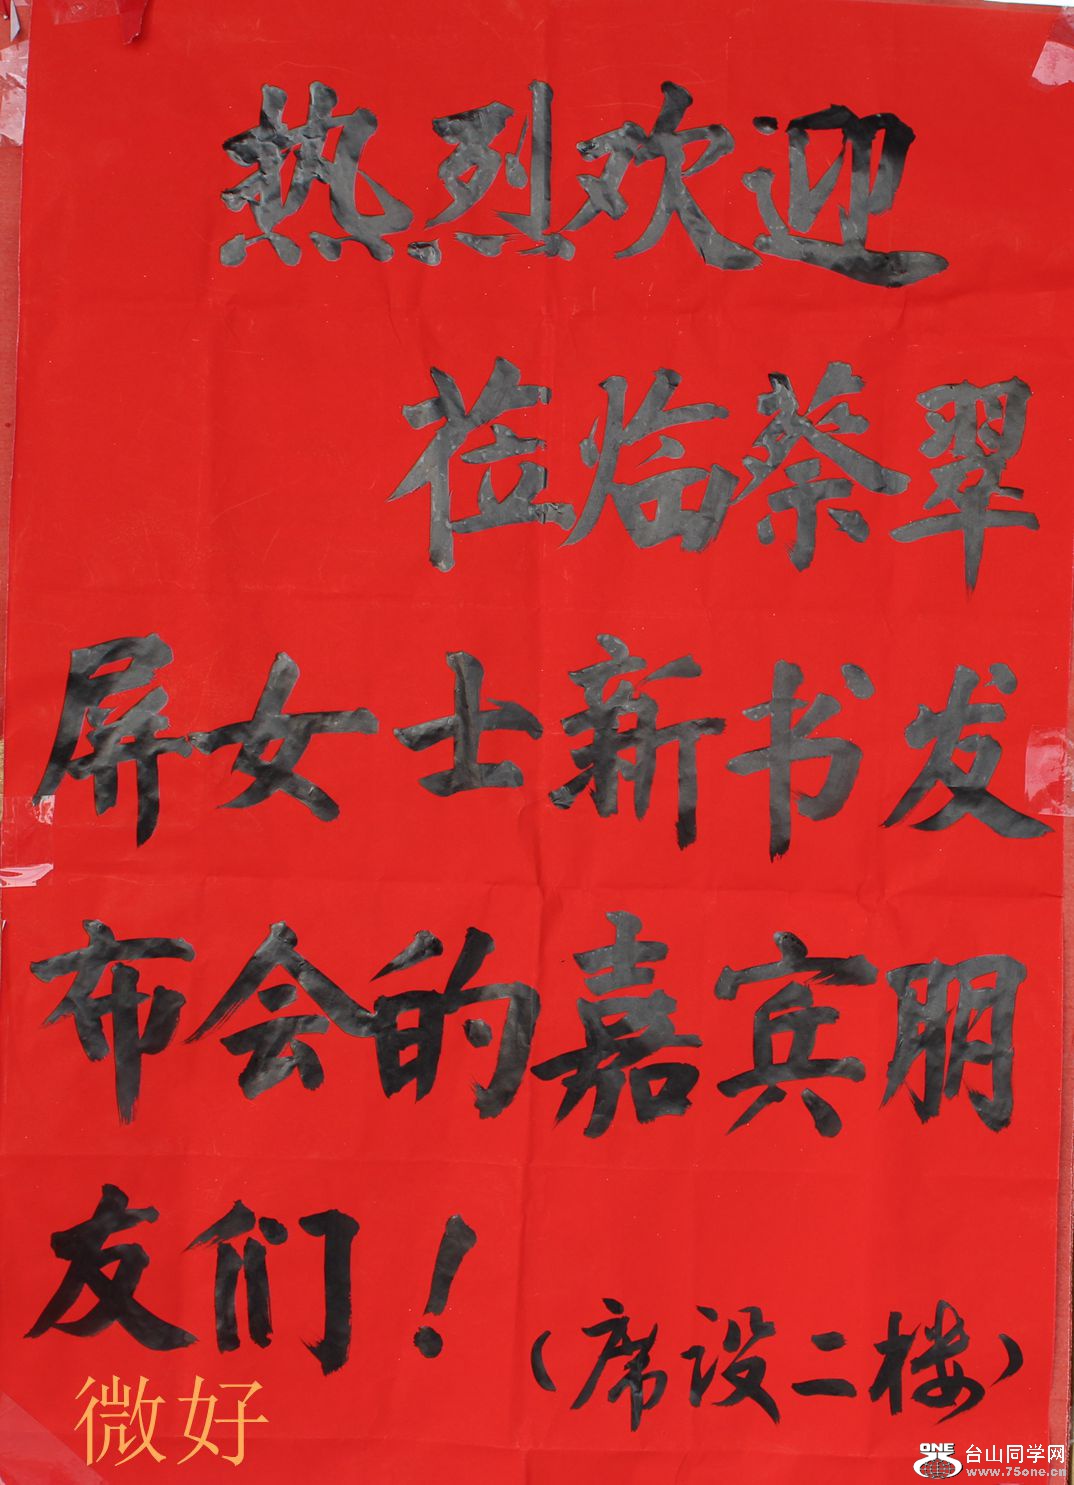 热烈欢迎
莅临蔡翠
屏女士新书发
布会的嘉宾朋
友们！
（席设二楼）
微好
ONE 台山同学网
www.75one.cn